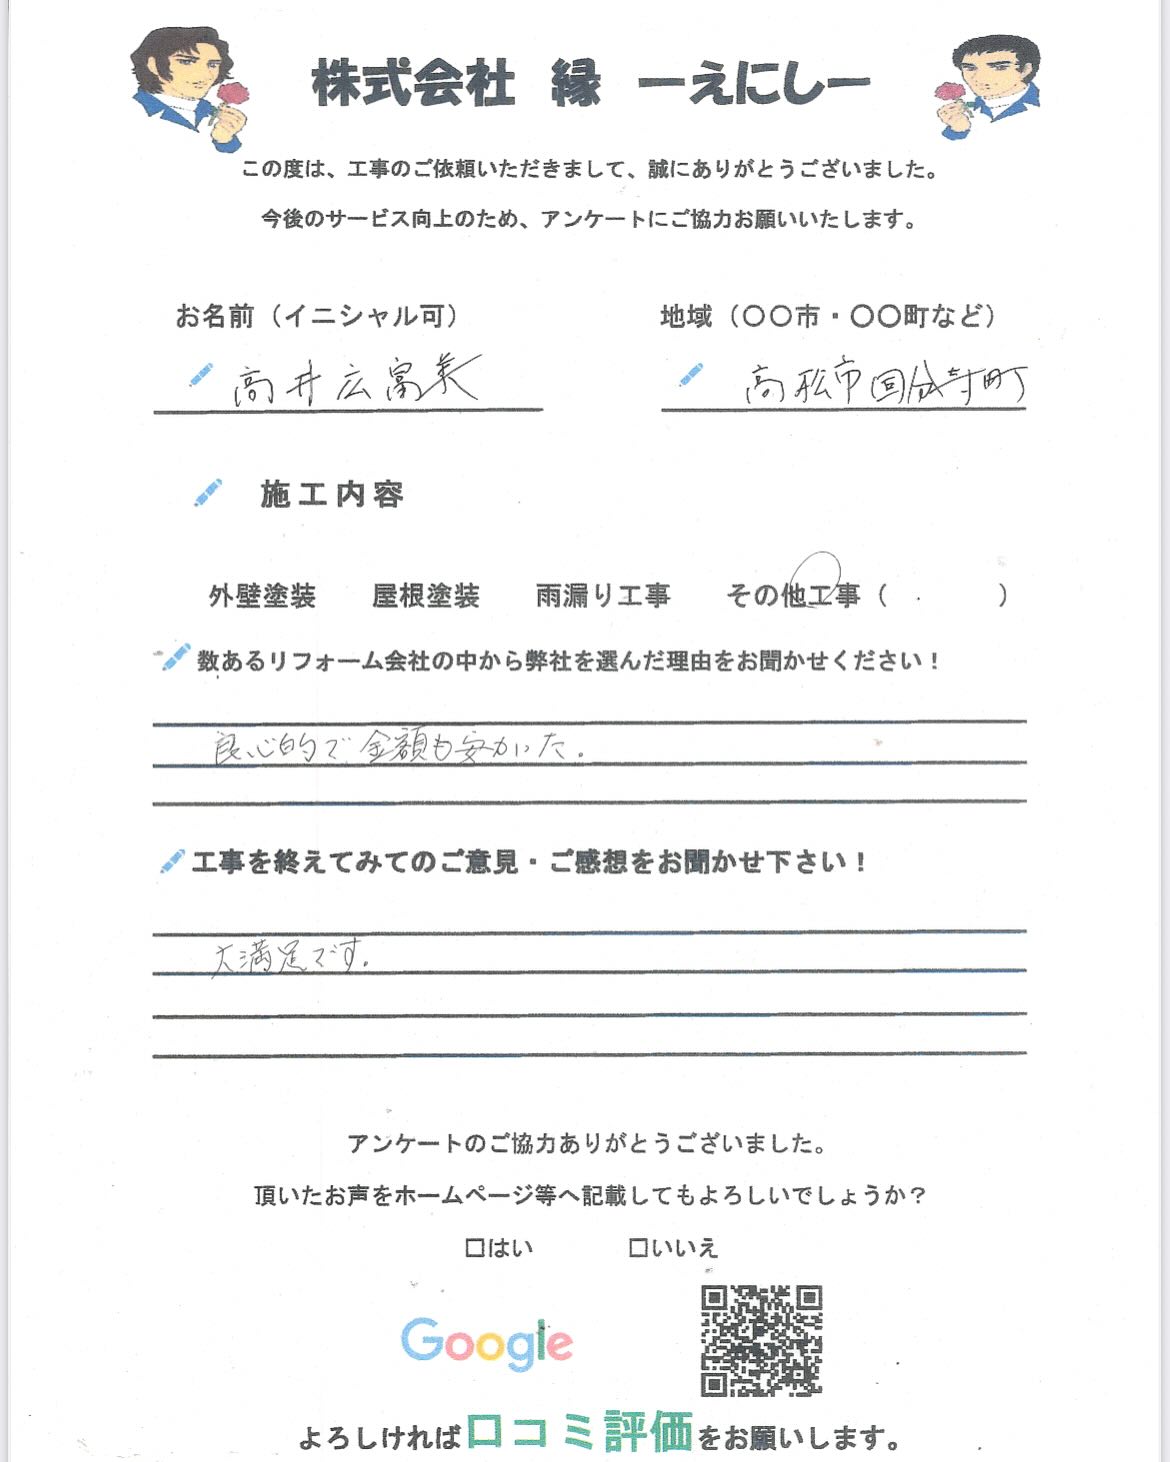 株式会社 縁 ーえにしー
この度は、工事のご依頼いただきまして、誠にありがとうございました。
今後のサービス向上のため、アンケートにご協力お願いいたします。
お名前（イニシャル可） 地域（〇〇市・〇〇町など）
高井広富美 高松市国分寺町
施工内容
外壁塗装 屋根塗装 雨漏り工事 その他工事（ ）
数あるリフォーム会社の中から弊社を選んだ理由をお聞かせください！
良心的で金額も安かった.
工事を終えてみてのご意見・ご感想をお聞かせ下さい！
大満足です.
アンケートのご協力ありがとうございました。
頂いたお声をホームページ等へ記載してもよろしいでしょうか？
□はい □いいえ
Google
よろしければ口コミ評価をお願いします。